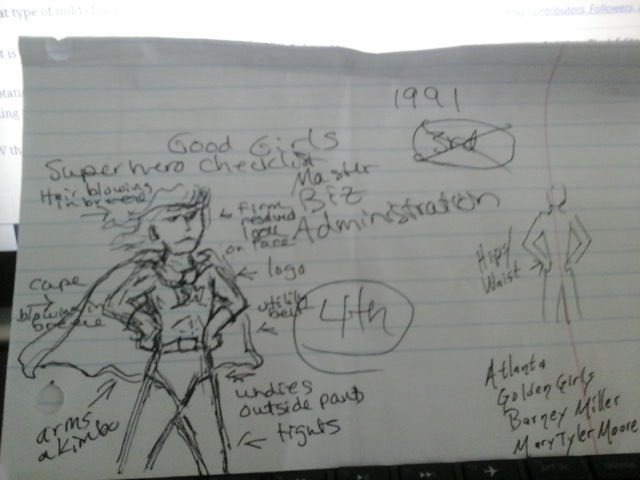 Contributors, Followers,
1991
3rd
Good Girls
Superhero Checklist
Master
Biz
Administration
Hair blowing
in breeze
Firm
resolved
look
on face
logo
cape
blowing in
breeze
utility
belt
4th
Hips/
Waist
undies
outside pants
tights
arms
akimbo
Atlanta
Golden Girls
Barney Miller
Mary Tyler Moore